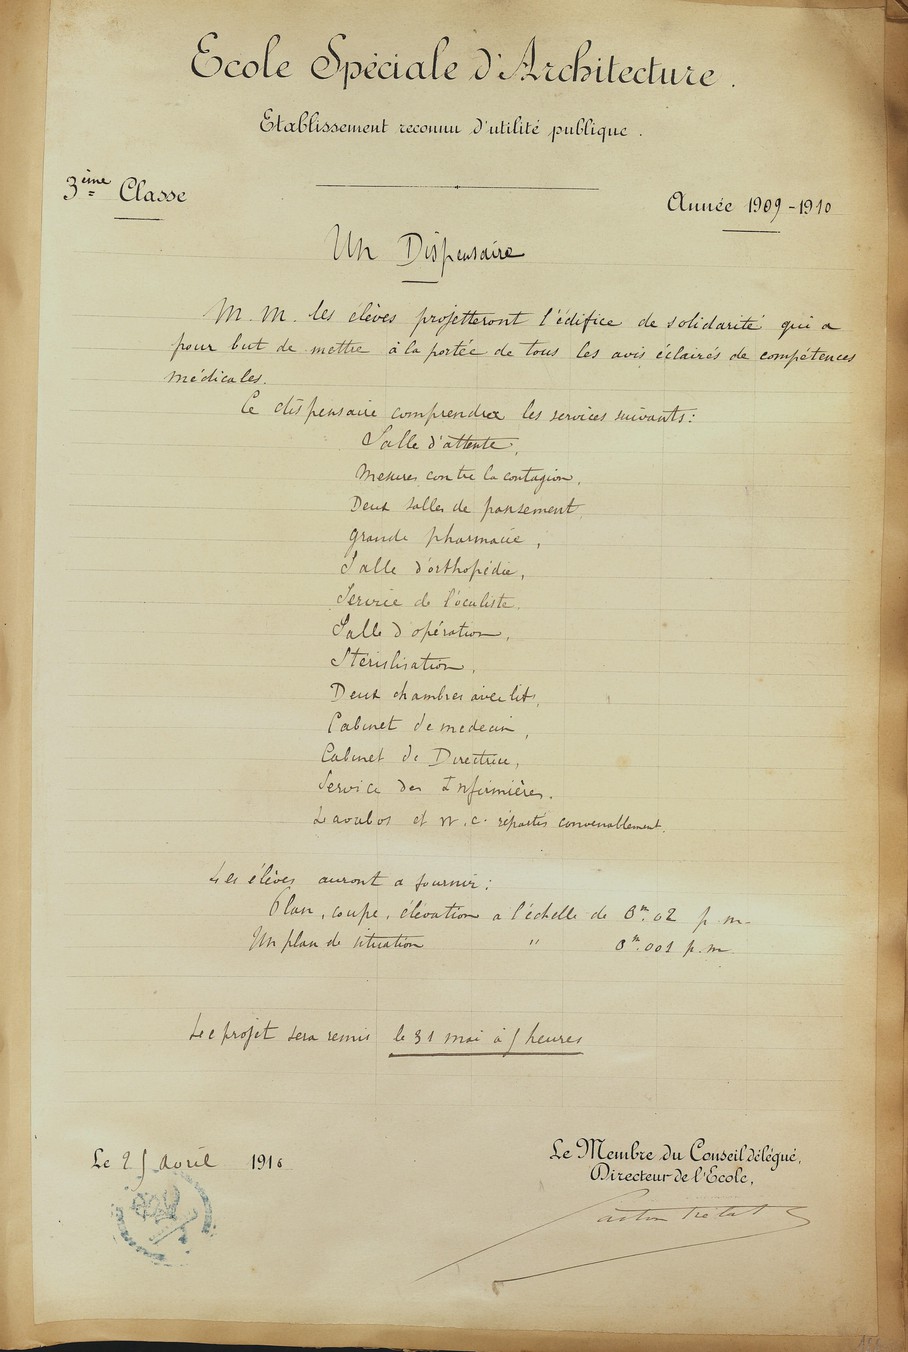 Ecole Spéciale d'Architecture.
Etablissement reconnu d'utilité publique.
3ème Classe
Année 1909-1910
Un Dispensaire
M.M. les élèves projetteront l'édifice de solidarité qui a
pour but de mettre à la portée de tous les avis éclairés de compétences
médicales.
Ce dispensaire comprendra les services suivants:
Salle d'attente,
Mesures contre la contagion,
Deux salles de pansement
grande pharmacie,
Salle d'orthopédie,
Service de l'oculiste.
Salle d'opération,
Stérilisation,
Deux chambres avec lits,
Cabinet de medecin,
Cabinet de Directrice,
Service des Infirmières.
Lavabos et W.C. répartis convenablement.
Les élèves auront a fournir:
Plan, coupe, élévation a l'échelle de 0m.02 p.m.
Un plan de situation " 0m.001 p.m.
Le projet sera remis le 31 mai à 5 heures
Le 25 Avril 1910
Le Membre du Conseil délégué,
Directeur de l'Ecole,
Gaston Trélat